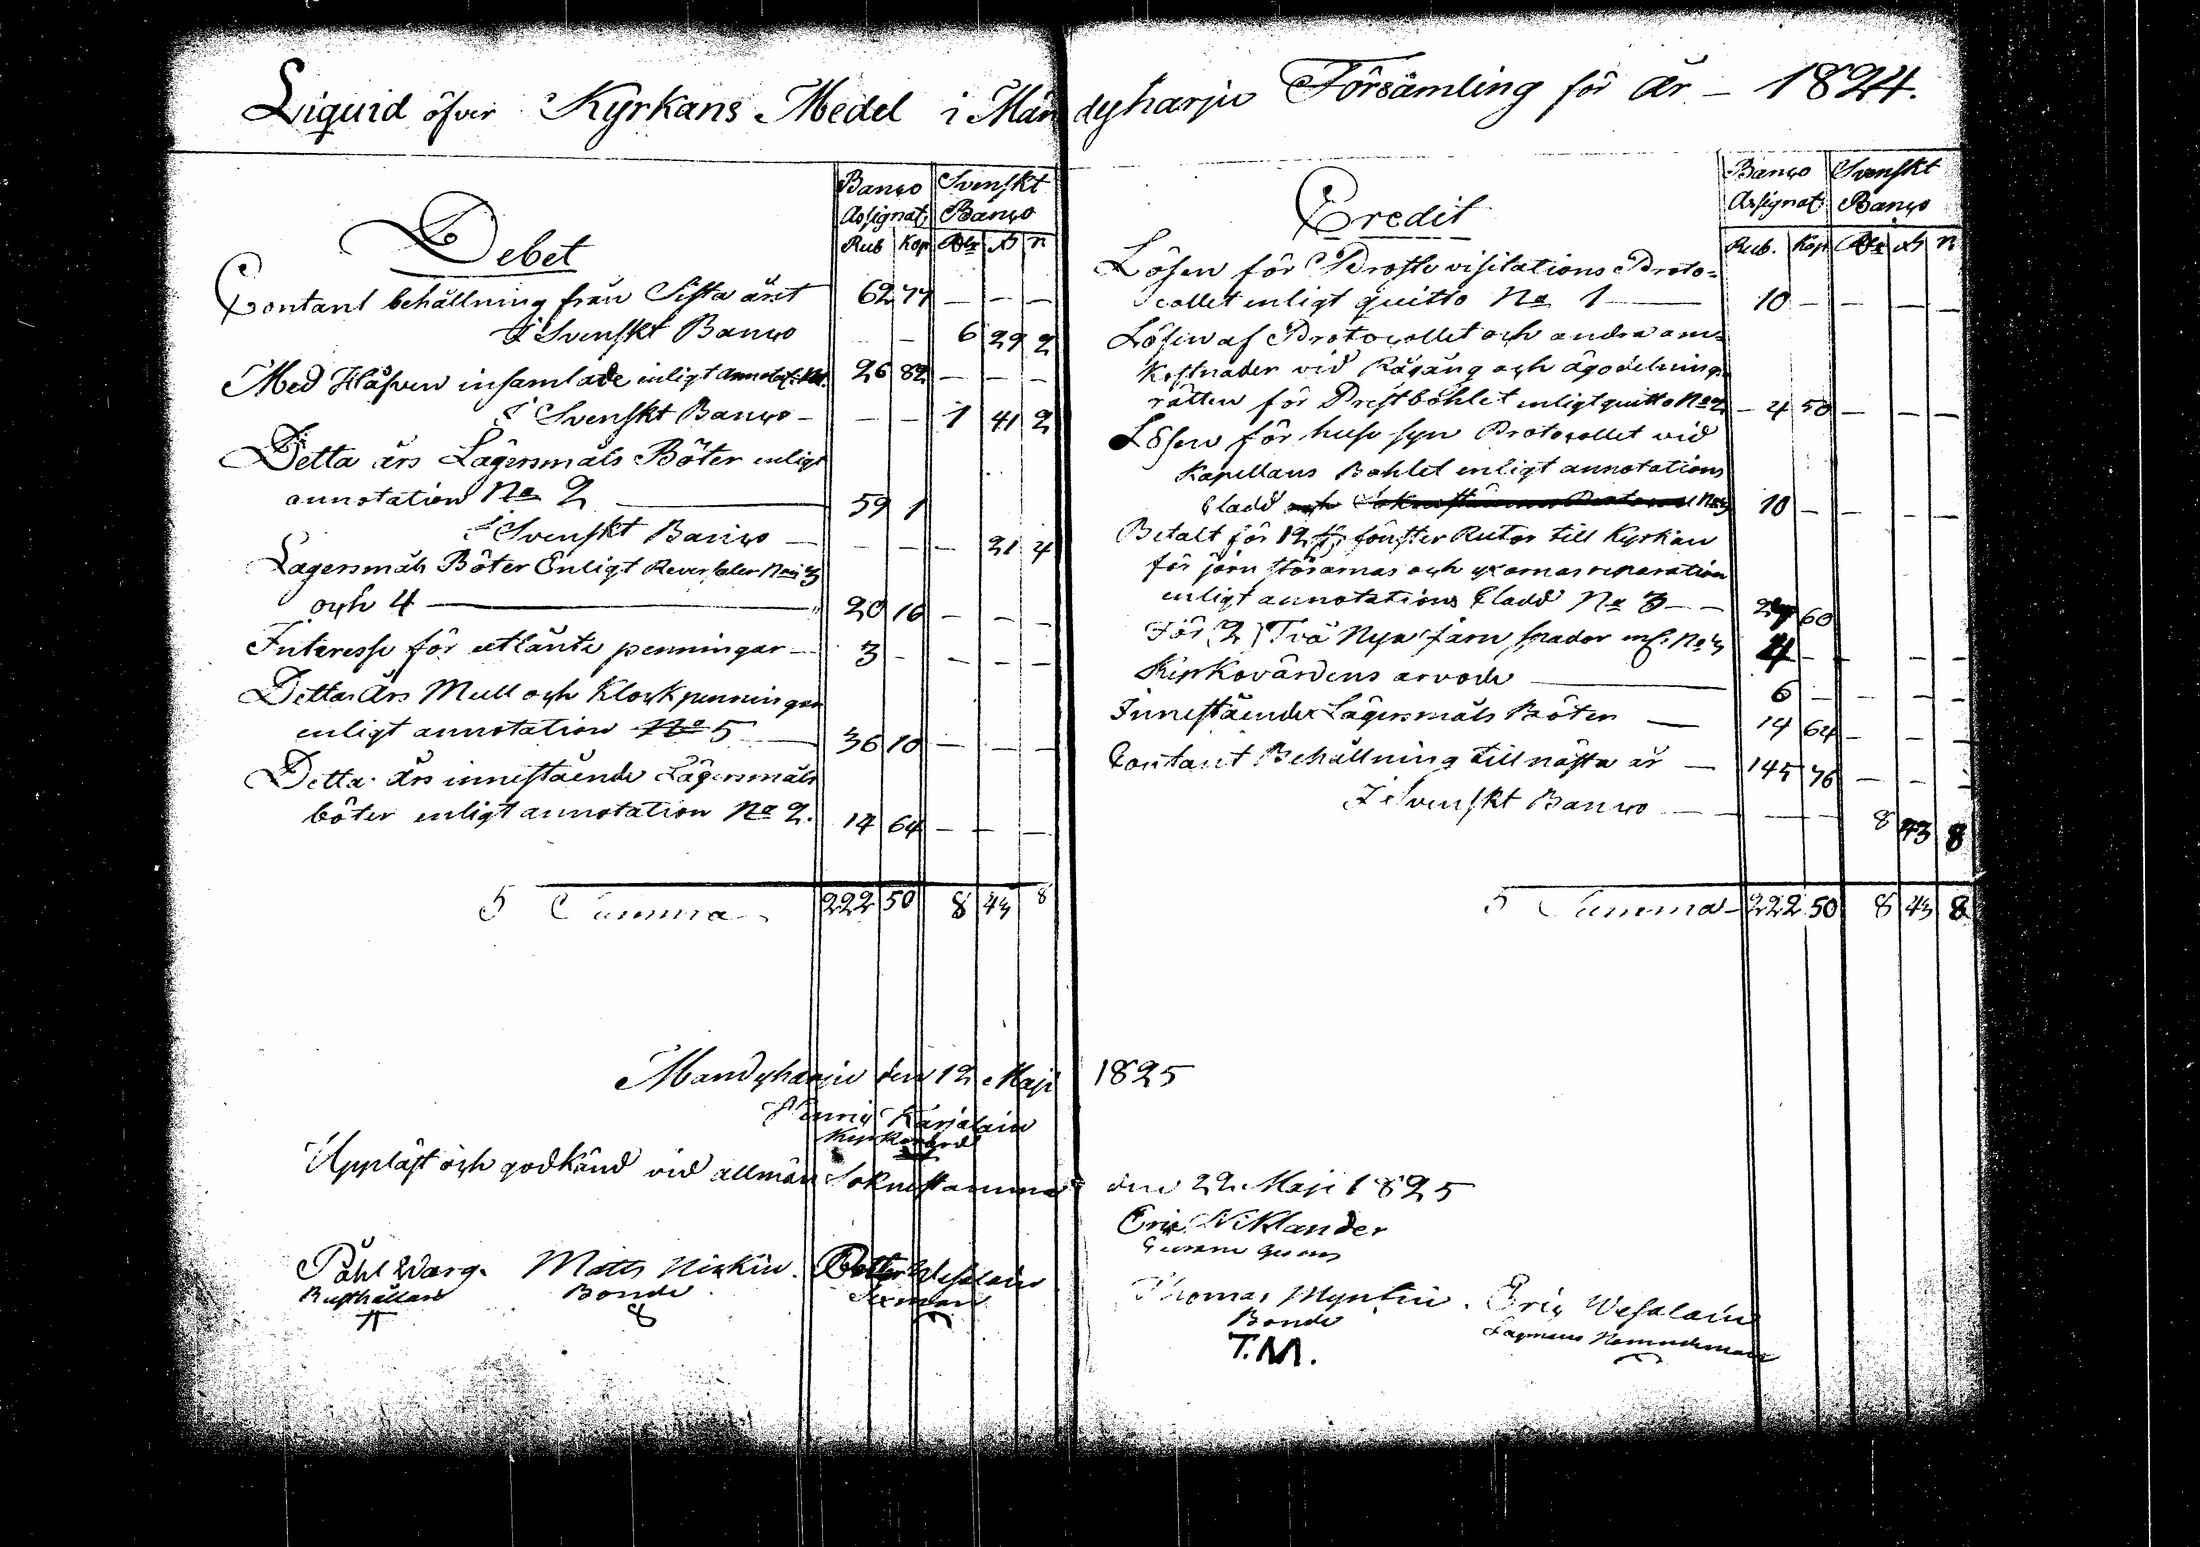 Liquid öfver Kyrkans Medel i Mändyharju Församling för År - 1824.
Debet
Banco Assignat. Svenskt Banco
Rub Kop Rdr ß r
Contant behållning från Sista året 62 77 — — —
I Svenskt Banco — — 6 29 2
Med Håfven insamlade enligt Annotat: No 1. 26 82 — — —
I Svenskt Banco — — — 1 41 2
Detta års Lägersmåls Böter enligt
annotation No 2 — 59 1
I Svenskt Banco — — — — 21 4
Lägersmåls Böter Enligt Reversaler No 3
och 4 — 20 16 — — —
Interesse för utlånta penningar — 3 - — — —
Detta Års Mull och Klock penningar
enligt annotation No 5 — 36 10 — — —
Detta Års innestående Lägersmåls
böter enligt annotation No 2. 14 64 — — —
Summa 222 50 8 43 8
Credit
Banco Assignat Svenskt Banco
Rub. Kop Rdr ß r
Lösen för Proste visitations Proto=
collet enligt quitto No 1 — 10 — — — —
Lösen af Protocollet och andra om=
kostnader vid Rågång och ägodelnings
rätten för Prestbohlet enligt quitto No 2 — 4 50 — — —
Lösen för huse syn Protocollet vid
Kapellans Bohlet enligt annotations
bladd No 3 10 — — — —
Betalt för 12 st. fönster Rutor till Kyrkan
för järn störarnas och yxornas reparation
enligt annotations bladd No 3 — — 60
För (2) Två Nya järn spador enl. No 3 — — — —
Kyrkovärdens arvode — 6 — — — —
Innestående Lägersmåls Böter — 14 64 — — —
Contant Behållning till nästa år — 145 76 — — —
I Svenskt Banco — — — 8 43 8
Summa — 222 50 8 43 8
Mandyharju den 12 Maji 1825
Henric Karjalain
Kyrkovärd
Uppläst och godkänd vid allmän Soknestämma den 22 Maji 1825
Eric Niklander
Påhl Warg. Matts Niskin. Petter Wesalain
Rusthållare Bonde Sexman
Thomas Myntin. Eric Wesalain
Bonde Lagmans Nämndeman
T.M.